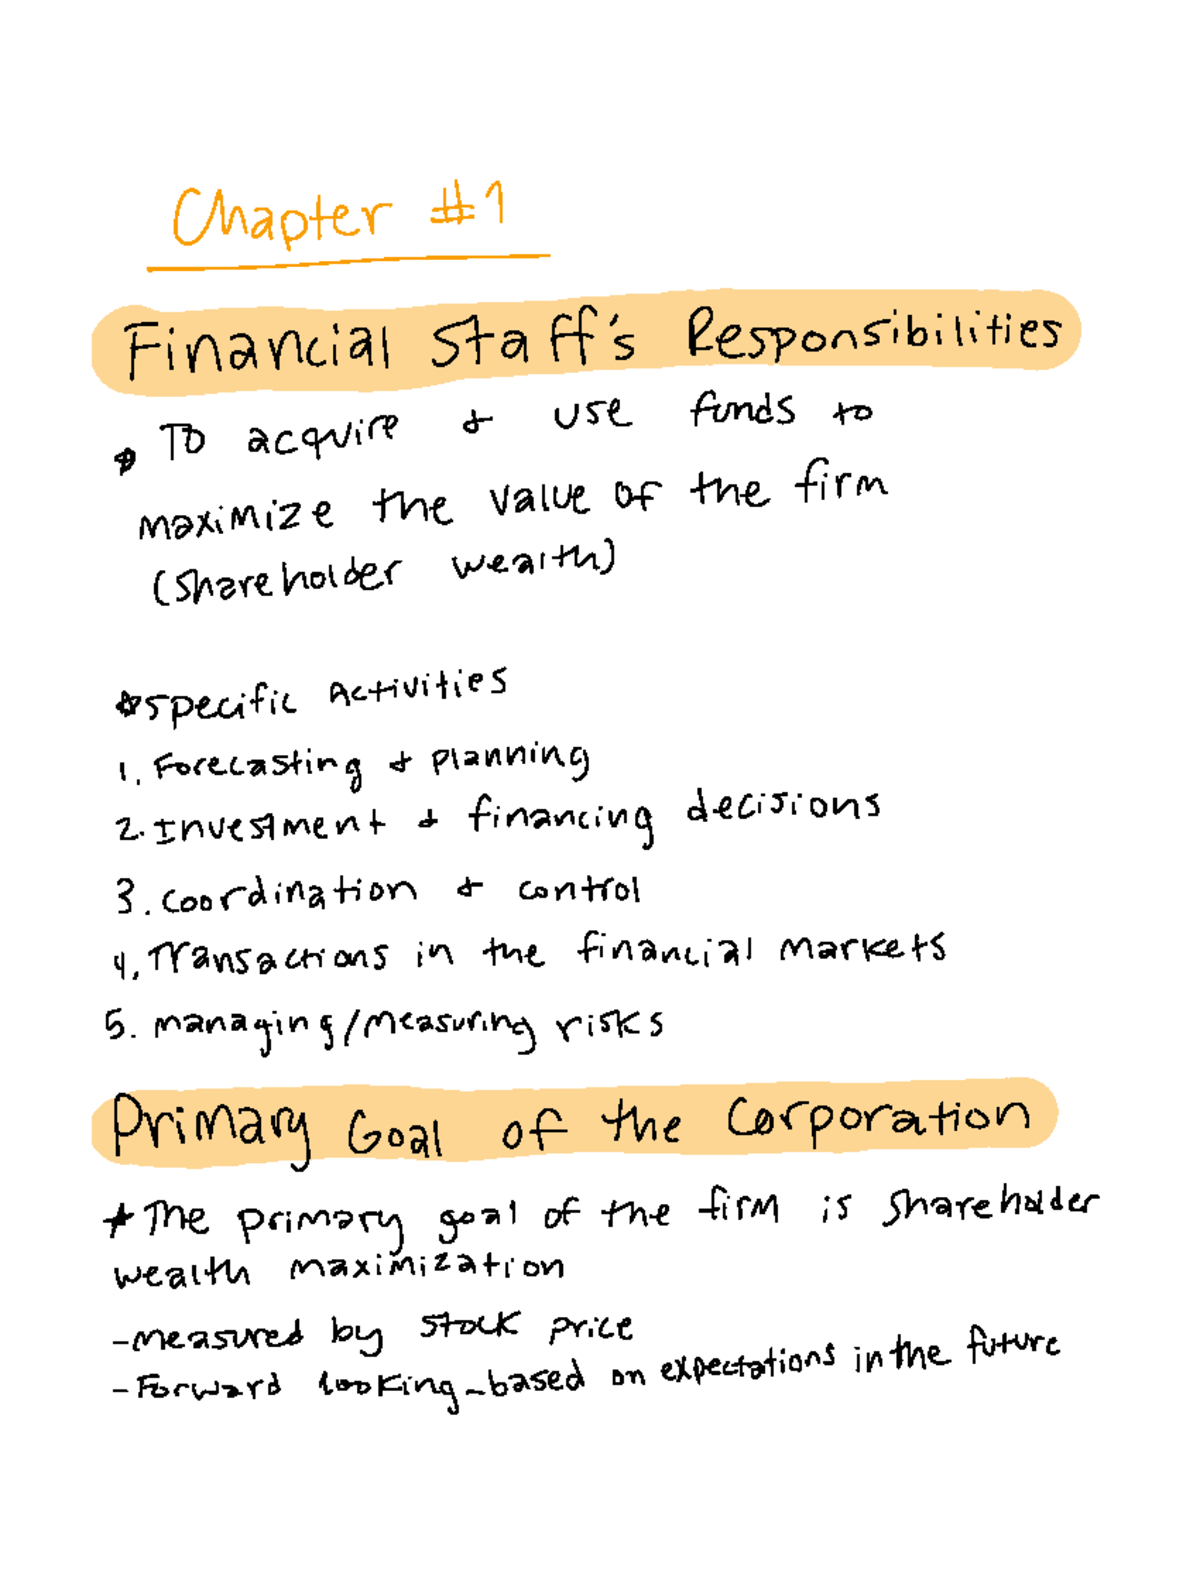 Chapter #1
Financial Staff's Responsibilities
* To acquire & use funds to
maximize the value of the firm
(shareholder wealth)
*Specific Activities
1. Forecasting & planning
2. Investment & financing decisions
3. coordination & control
4. Transactions in the financial markets
5. managing/measuring risks
Primary Goal of the Corporation
*The primary goal of the firm is shareholder
wealth maximization
-measured by stock price
-Forward looking-based on expectations in the future